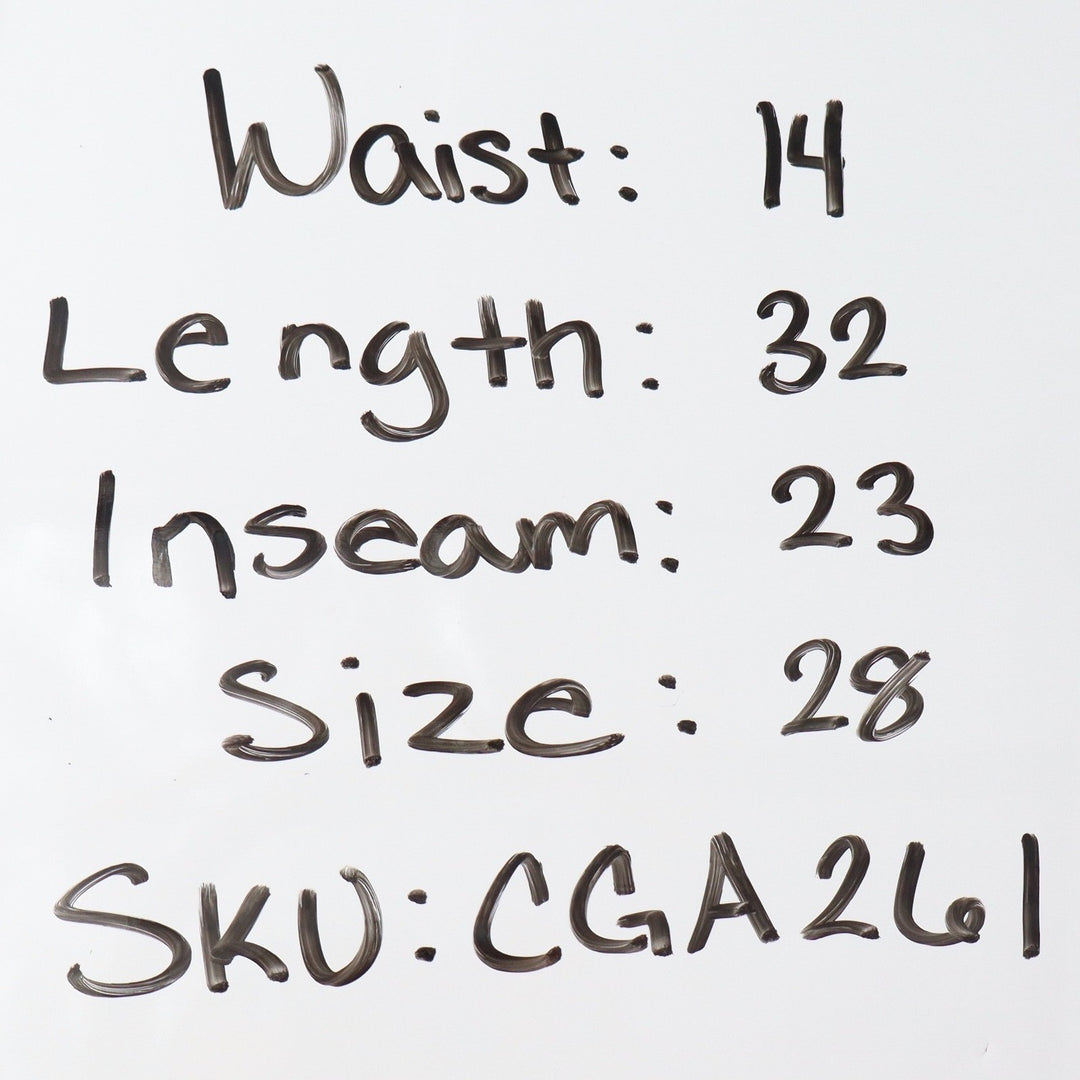 Waist: 14
Length: 32
Inseam: 23
Size: 28
SKU: CGA261